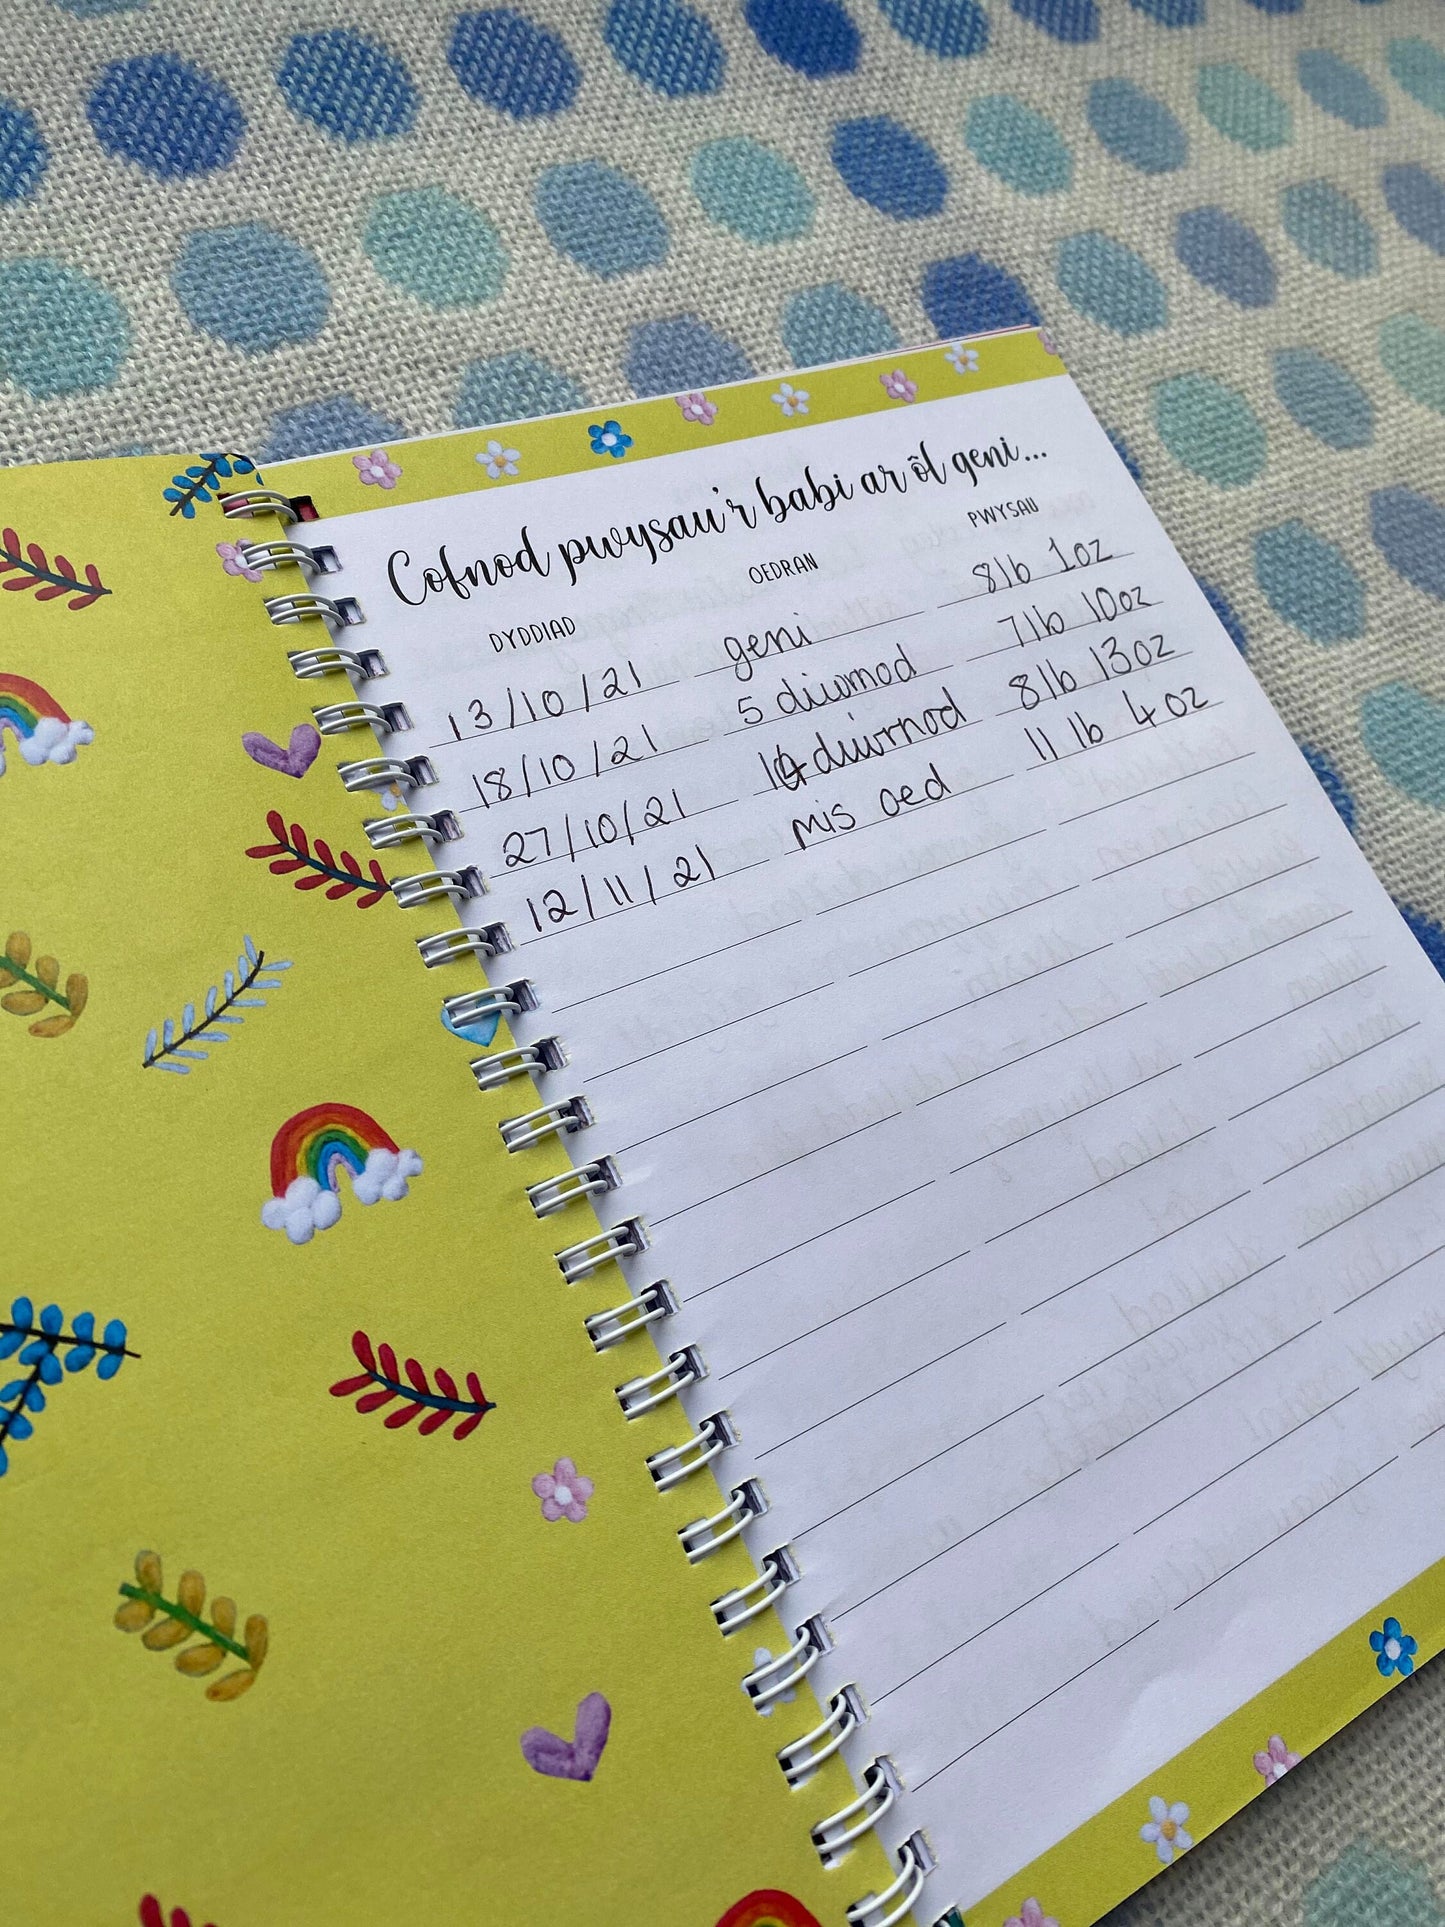 Cofnod pwysau'r babi ar ôl geni...
DYDDIAD OEDRAN PWYSAU
13/10/21 geni 8lb 1oz
18/10/21 5 diwrnod 7lb 10oz
27/10/21 14 diwrnod 8lb 13oz
12/11/21 mis oed 11 lb 4oz